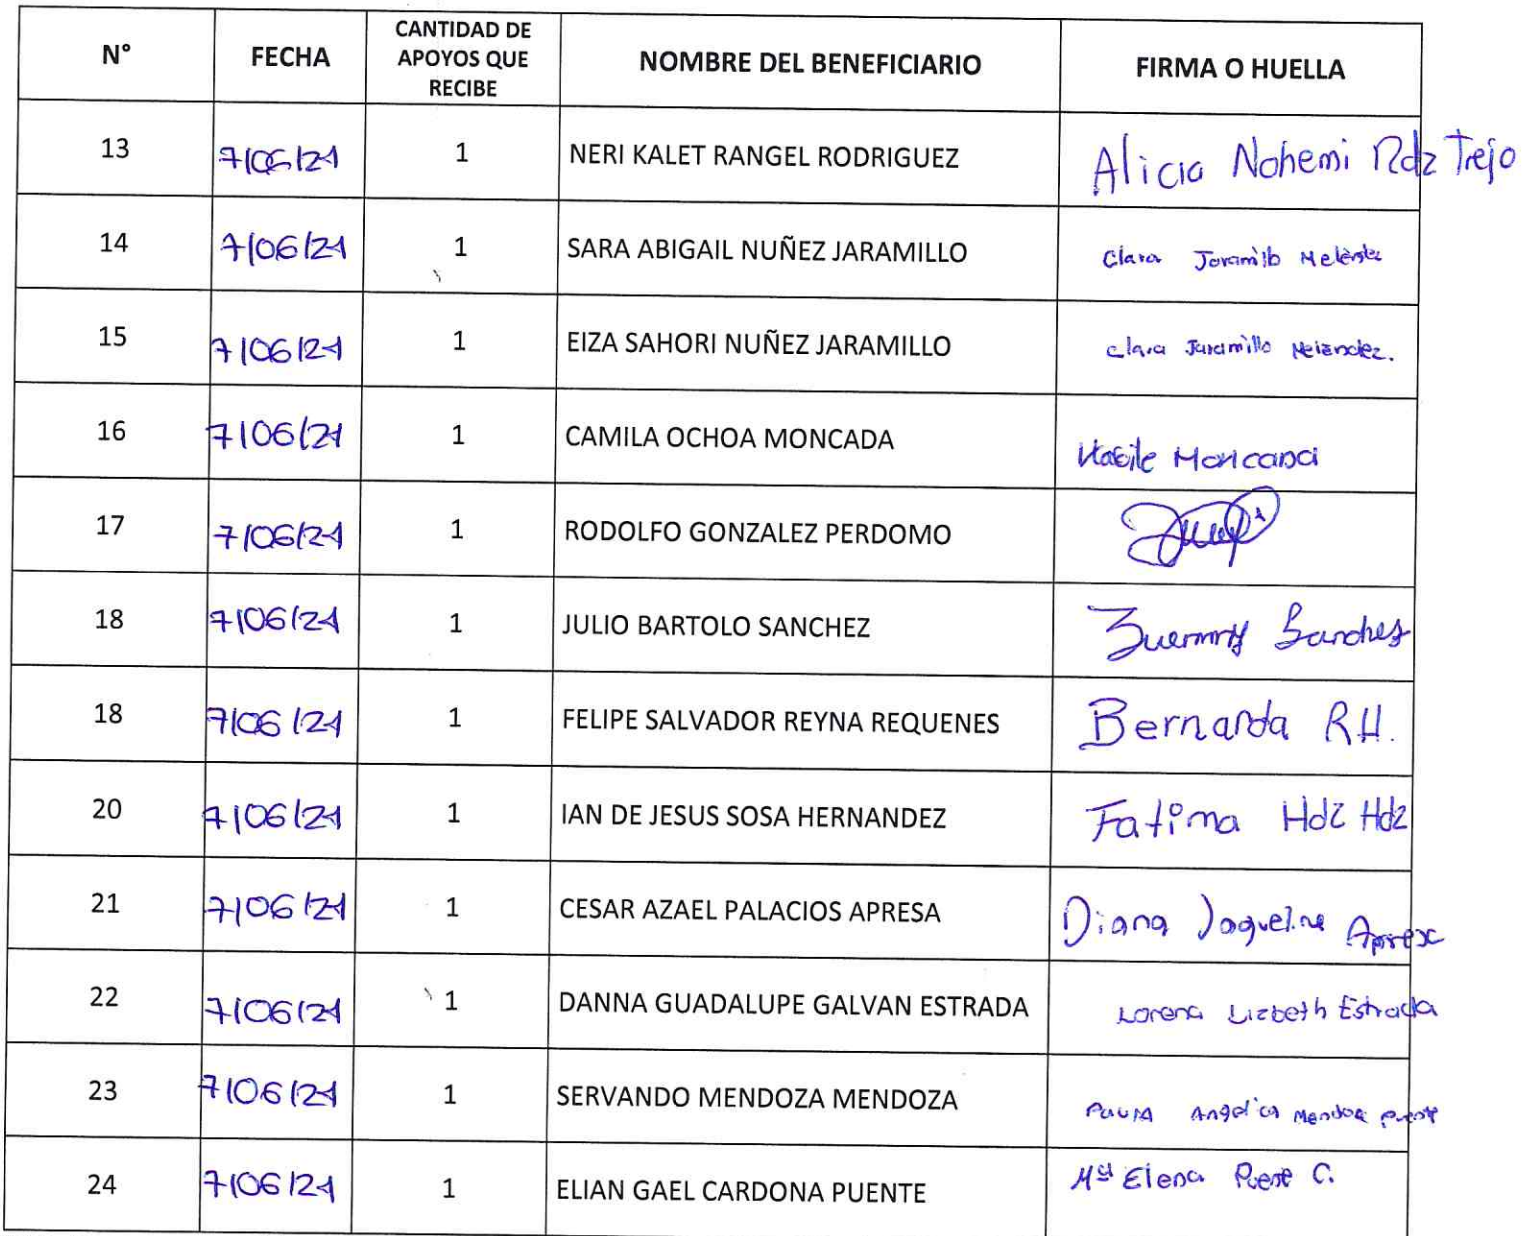 N° FECHA CANTIDAD DE APOYOS QUE RECIBE NOMBRE DEL BENEFICIARIO FIRMA O HUELLA
13 7/06/21 1 NERI KALET RANGEL RODRIGUEZ Alicia Nohemi Rdz Trejo
14 7/06/21 1 SARA ABIGAIL NUÑEZ JARAMILLO Clara Jaramillo Melendez
15 7/06/21 1 EIZA SAHORI NUÑEZ JARAMILLO Clara Jaramillo Melendez.
16 7/06/21 1 CAMILA OCHOA MONCADA Moncada
17 7/06/21 1 RODOLFO GONZALEZ PERDOMO
18 7/06/21 1 JULIO BARTOLO SANCHEZ Sanches
18 7/06/21 1 FELIPE SALVADOR REYNA REQUENES Bernarda R.H.
20 7/06/21 1 IAN DE JESUS SOSA HERNANDEZ Fatima Hdz Hdz
21 7/06/21 1 CESAR AZAEL PALACIOS APRESA Diana Jaqueline
22 7/06/21 1 DANNA GUADALUPE GALVAN ESTRADA Lorena Lizbeth Estrada
23 7/06/21 1 SERVANDO MENDOZA MENDOZA Angelica Mendoza Puente
24 7/06/21 1 ELIAN GAEL CARDONA PUENTE Mª Elena Puente C.